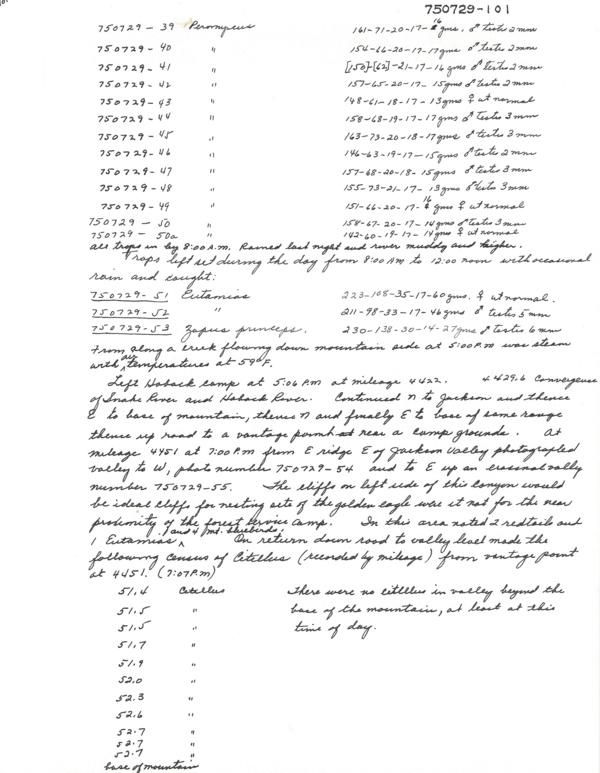 750729-101
750729 - 39 Peromyscus 161-71-20-17-16 gms. ♂ testes 2mm
750729 - 40 " 154-66-20-17-17gms ♂ testes 2mm
750729 - 41 " [150]-[62]-21-17-16 gms ♂ testes 2 mm
750729 - 42 " 157-65-20-17- 15gms ♂ testes 2 mm
750729 - 43 " 148-61-18-17-13gms ♀ ut normal
750729 - 44 " 158-68-19-17-17gms ♂ testes 3mm
750729 - 45 " 163-73-20-18-17gms ♂ testes 3mm
750729 - 46 " 146-63-19-17-15gms ♂ testes 2mm
750729 - 47 " 157-68-20-18- 15gms ♂ testes 3mm
750729 - 48 " 155-73-21-17- 13gms ♂ testes 3mm
750729 - 49 " 151-66-20-17-16 gms ♀ ut normal
750729 - 50 " 158-67-20-17-14gms ♂ testes 3mm
750729 - 50a " 142-60-19-17-14gms ♀ ut normal
all traps in by 8:00 A.M. Rained last night and river muddy and higher.
Traps left set during the day from 8:00 AM to 12:00 noon with occasional
rain and caught:
750729-51 Eutamias 223-108-35-17-60gms. ♀ ut normal.
750729-52 " 211-98-33-17-46gms ♂ testes 5mm
750729-53 Zapus princeps. 230-138-30-14-27gms ♂ testes 6mm
From along a creek flowing down mountain side at 5:00 P.M was steam
with air temperatures at 59°F.
Left Hoback camp at 5:06 P.M at mileage 4422. 4429.6 Convergence
of Snake River and Hoback River. Continued N to Jackson and thence
E to base of mountain, thence N and finally E to base of same range
thence up road to a vantage point near a camp grounds. At
mileage 4451 at 7:00 P.m from E ridge E of Jackson valley photographed
valley to W, photo number 750729-54 and to E up an erosional valley
number 750729-55. The cliffs on left side of this canyon would
be ideal cliffs for nesting site of the golden eagle were it not for the near
proximity of the forest service camp. In this area noted 2 redtails and
1 Eutamias and 4 mt. bluebirds. On return down road to valley level made the
following census of Citellus (recorded by mileage) from vantage point
at 4451. (7:07 P.m)
51.4 Citellus There were no citellus in valley beyond the
51.5 " base of the mountain, at least at this
51.5 " time of day.
51.7 "
51.9 "
52.0 "
52.3 "
52.6 "
52.7 "
52.7 "
52.7 "
base of mountain